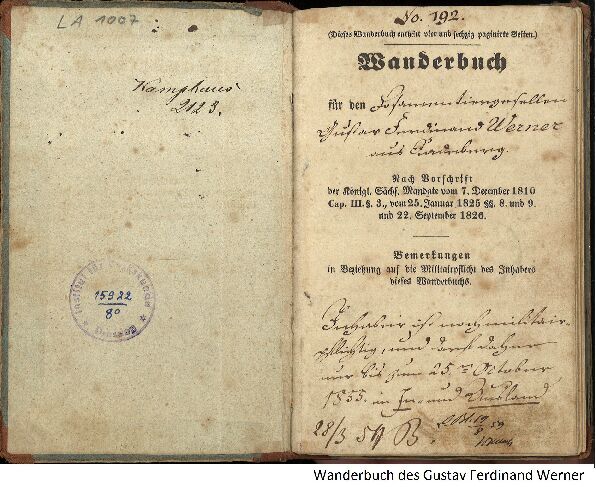 LA 1007
Kamphaus
2123.
Institut für
15922
80
No. 192.
(Dieses Wanderbuch enthält vier und sechzig paginirte Seiten.)
Wanderbuch
für den Posamentiergesellen
Gustav Ferdinand Werner
aus
Nach Vorschrift
der Königl. Sächs. Mandate vom 7. December 1810
Cap. III. §. 3., vom 25. Januar 1825 §§. 8. und 9.
und 22. September 1826.
Bemerkungen
in Beziehung auf die Militairpflicht des Inhabers
dieses Wanderbuchs.
Inhaber ist noch militair-
pflichtig, und darf daher
nur bis zum 25. October
1855. in In- und Ausland
28/3 54 B.
Wanderbuch des Gustav Ferdinand Werner